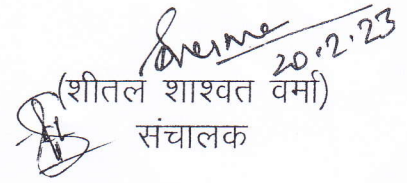 20.2.23
(शीतल शाश्वत वर्मा)
संचालक